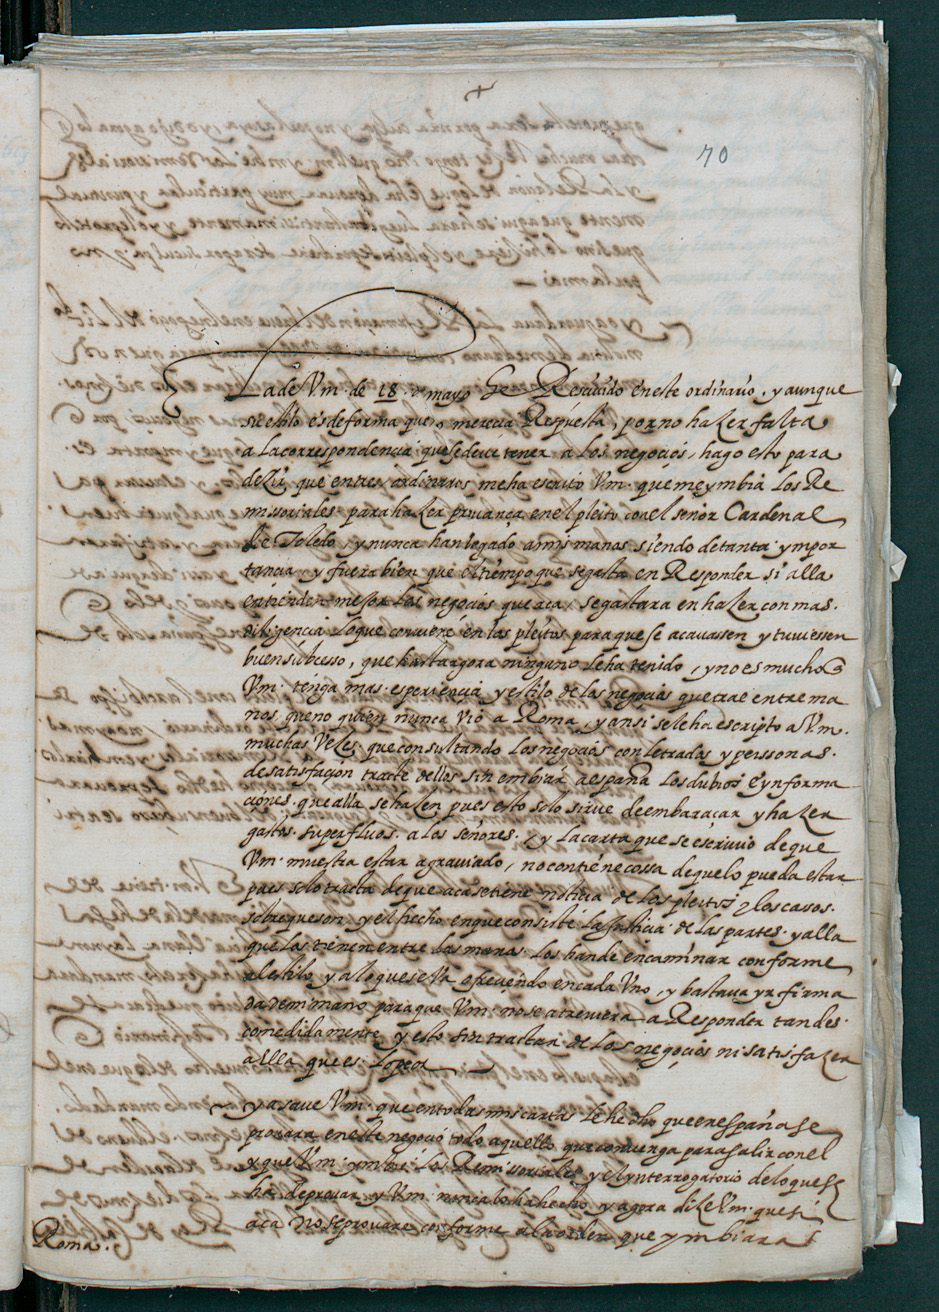 +
70
La de Vm. de 18. de mayo he Resciuido en este ordinario, y aunque
su estilo es de forma que no merecia Respuesta, por no hazer falta
a la correspondencia que se deue tener a los negocios, hago esto para
dezir que en tres ordinarios me ha escrito Vm. que me ymbia los Re
missoriales para hazer prouança en el pleito con el señor Cardenal
de Toledo, y nunca han llegado a mis manos siendo de tanta ympor
tancia y fuera bien que el tiempo que se gasta en Responder si alla
entienden mejor los negocios que aca, se gastara en hazer con mas
diligencia lo que conuiene en los pleitos para que se acauassen y tuuiessen
buen subcesso, que hasta agora ninguno le ha tenido, y no es mucho q
Vm. tenga mas esperiencia y estilo de los negocios que trae entre ma
nos, que no quien nunca vio a Roma, y ansi se le ha escripto a Vm.
muchas Vezes que consultando los negocios con letrados y personas
de satisfacion tracte dellos sin embiar a españa los dubios e ynforma
ciones que alla se hazen pues esto solo sirue de embaraçar y hazer
gastos superfluos a los señores. y la carta que se escriuio de que
Vm. muestra estar agrauiado, no contiene cossa de que lo pueda estar
pues solo tracta de que aca se tiene noticia de los pleitos y los casos
sobre que son, y el hecho en que consiste la Justicia de las partes, y alla
que los tienen entre las manos los han de encaminar conforme
al estilo, y a lo que se va ofreciendo en cada Vno, y bastaua yr firma
da de mi mano para que Vm. no se atreuiera a Responder tan des
comedidamente, y esto sin tractar de los negocios ni satisfazer
a ella que es lo peor
ya saue Vm. que en todas mis cartas le he dicho que en españa se
prouara en este negocio todo aquello que conuenga para salir con el
y que Vm. ymbie los Remissoriales y el ynterrogatorio de lo que se
ha de prouar y Vm. nunca lo ha hecho, y agora dize Vm. que si
aca no se prouare conforme a la orden que ymbiara
Roma.